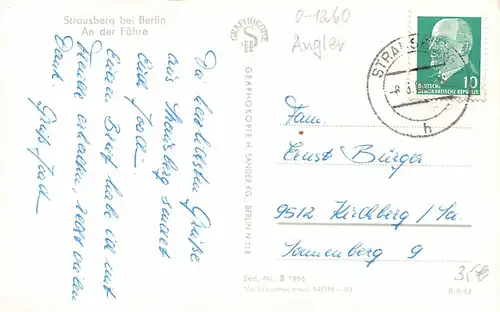 Strausberg bei Berlin
An der Fähre
Die herzlichsten Grüße
aus Strausberg sendet
Euch Joad.
Euren Brief habe ich mit
Freude erhalten, recht vielen
Dank. Gruß Joad
GRAPHOKOPIE
H S
GRAPHOKOPIE H. SANDER KG, BERLIN N 113
0-1260
Angler
STRAUSBERG
h
10
DEUTSCHE
DEMOKRATISCHE REPUBLIK
Fam.
Ernst Bürger
9512 Kirchberg / Sa.
Sonnenberg 9
Best.-Nr. B 1959